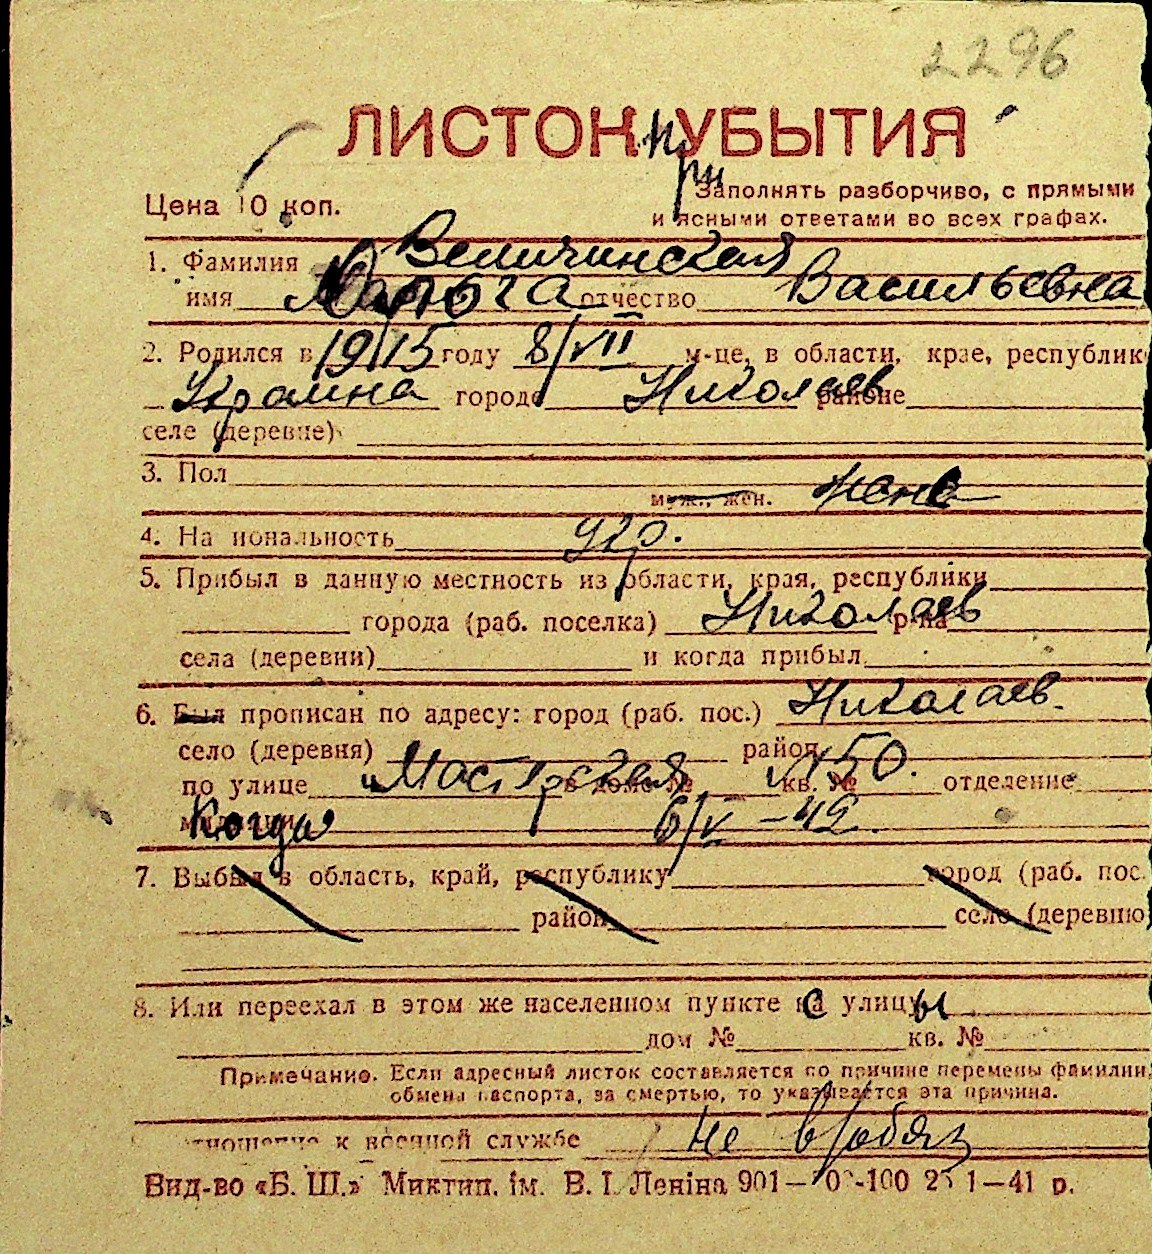 2296
ЛИСТОК УБЫТИЯ
при
Цена 10 коп.
Заполнять разборчиво, с прямыми
и ясными ответами во всех графах.
1. Фамилия Величинская
имя Ольга отчество Васильевна
2. Родился в 1915 году 8/VII м-це, в области, крае, республик
Украина городе Николаев районе
селе (деревне)
3. Пол
муж., жен. жен
4. Национальность укр.
5. Прибыл в данную местность из области, края, республики
города (раб. поселка) Николаев р-на
села (деревни) и когда прибыл
6. Был прописан по адресу: город (раб. пос.) Николаев.
село (деревня) район
по улице Мастерская в доме № 150. кв. № отделение
милиции Когда 6/V-42.
7. Выбыл в область, край, республику город (раб. пос.
район село (деревню
8. Или переехал в этом же населенном пункте с улицы
дом № кв. №
Примечание. Если адресный листок составляется по причине перемены фамилии,
обмена паспорта, за смертью, то указывается эта причина.
отношение к военной службе не в/обяз
Вид-во «Б. Ш.» Миктип. ім. В. І. Леніна 901— -100 1—41 р.